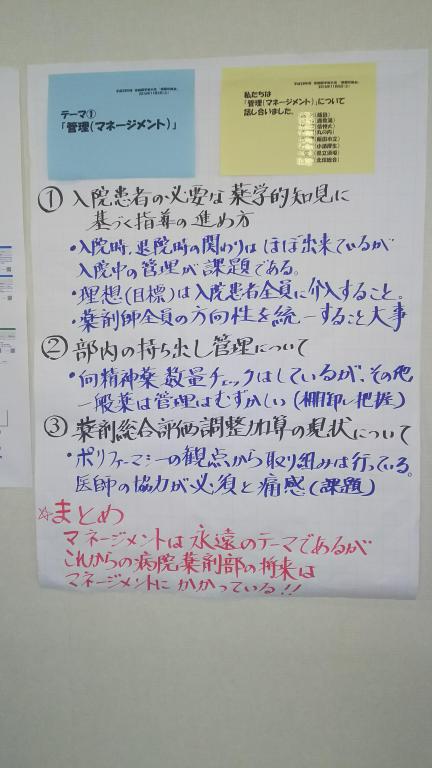 テーマ①
「管理(マネージメント)」
私たちは
「管理(マネージメント)」について
話し合いました。
① 入院患者の必要な薬学的知見に
基づく指導の進め方
・入院時、退院時の関わりはほぼ出来ているが
入院中の管理が課題である。
・理想(目標)は入院患者全員に介入すること。
・薬剤師全員の方向性を統一すること大事
② 部内の持ち出し管理について
・向精神薬、数量チェックはしているが、その他
一般薬は管理はむずかしい(棚卸し把握)
③ 薬剤総合評価調整加算の現状について
・ポリファーマシーの観点から取り組みは行っている。
医師の協力が必須と痛感(課題)
☆まとめ
マネージメントは永遠のテーマであるが
これからの病院薬剤部の将来は
マネージメントにかかっている!!